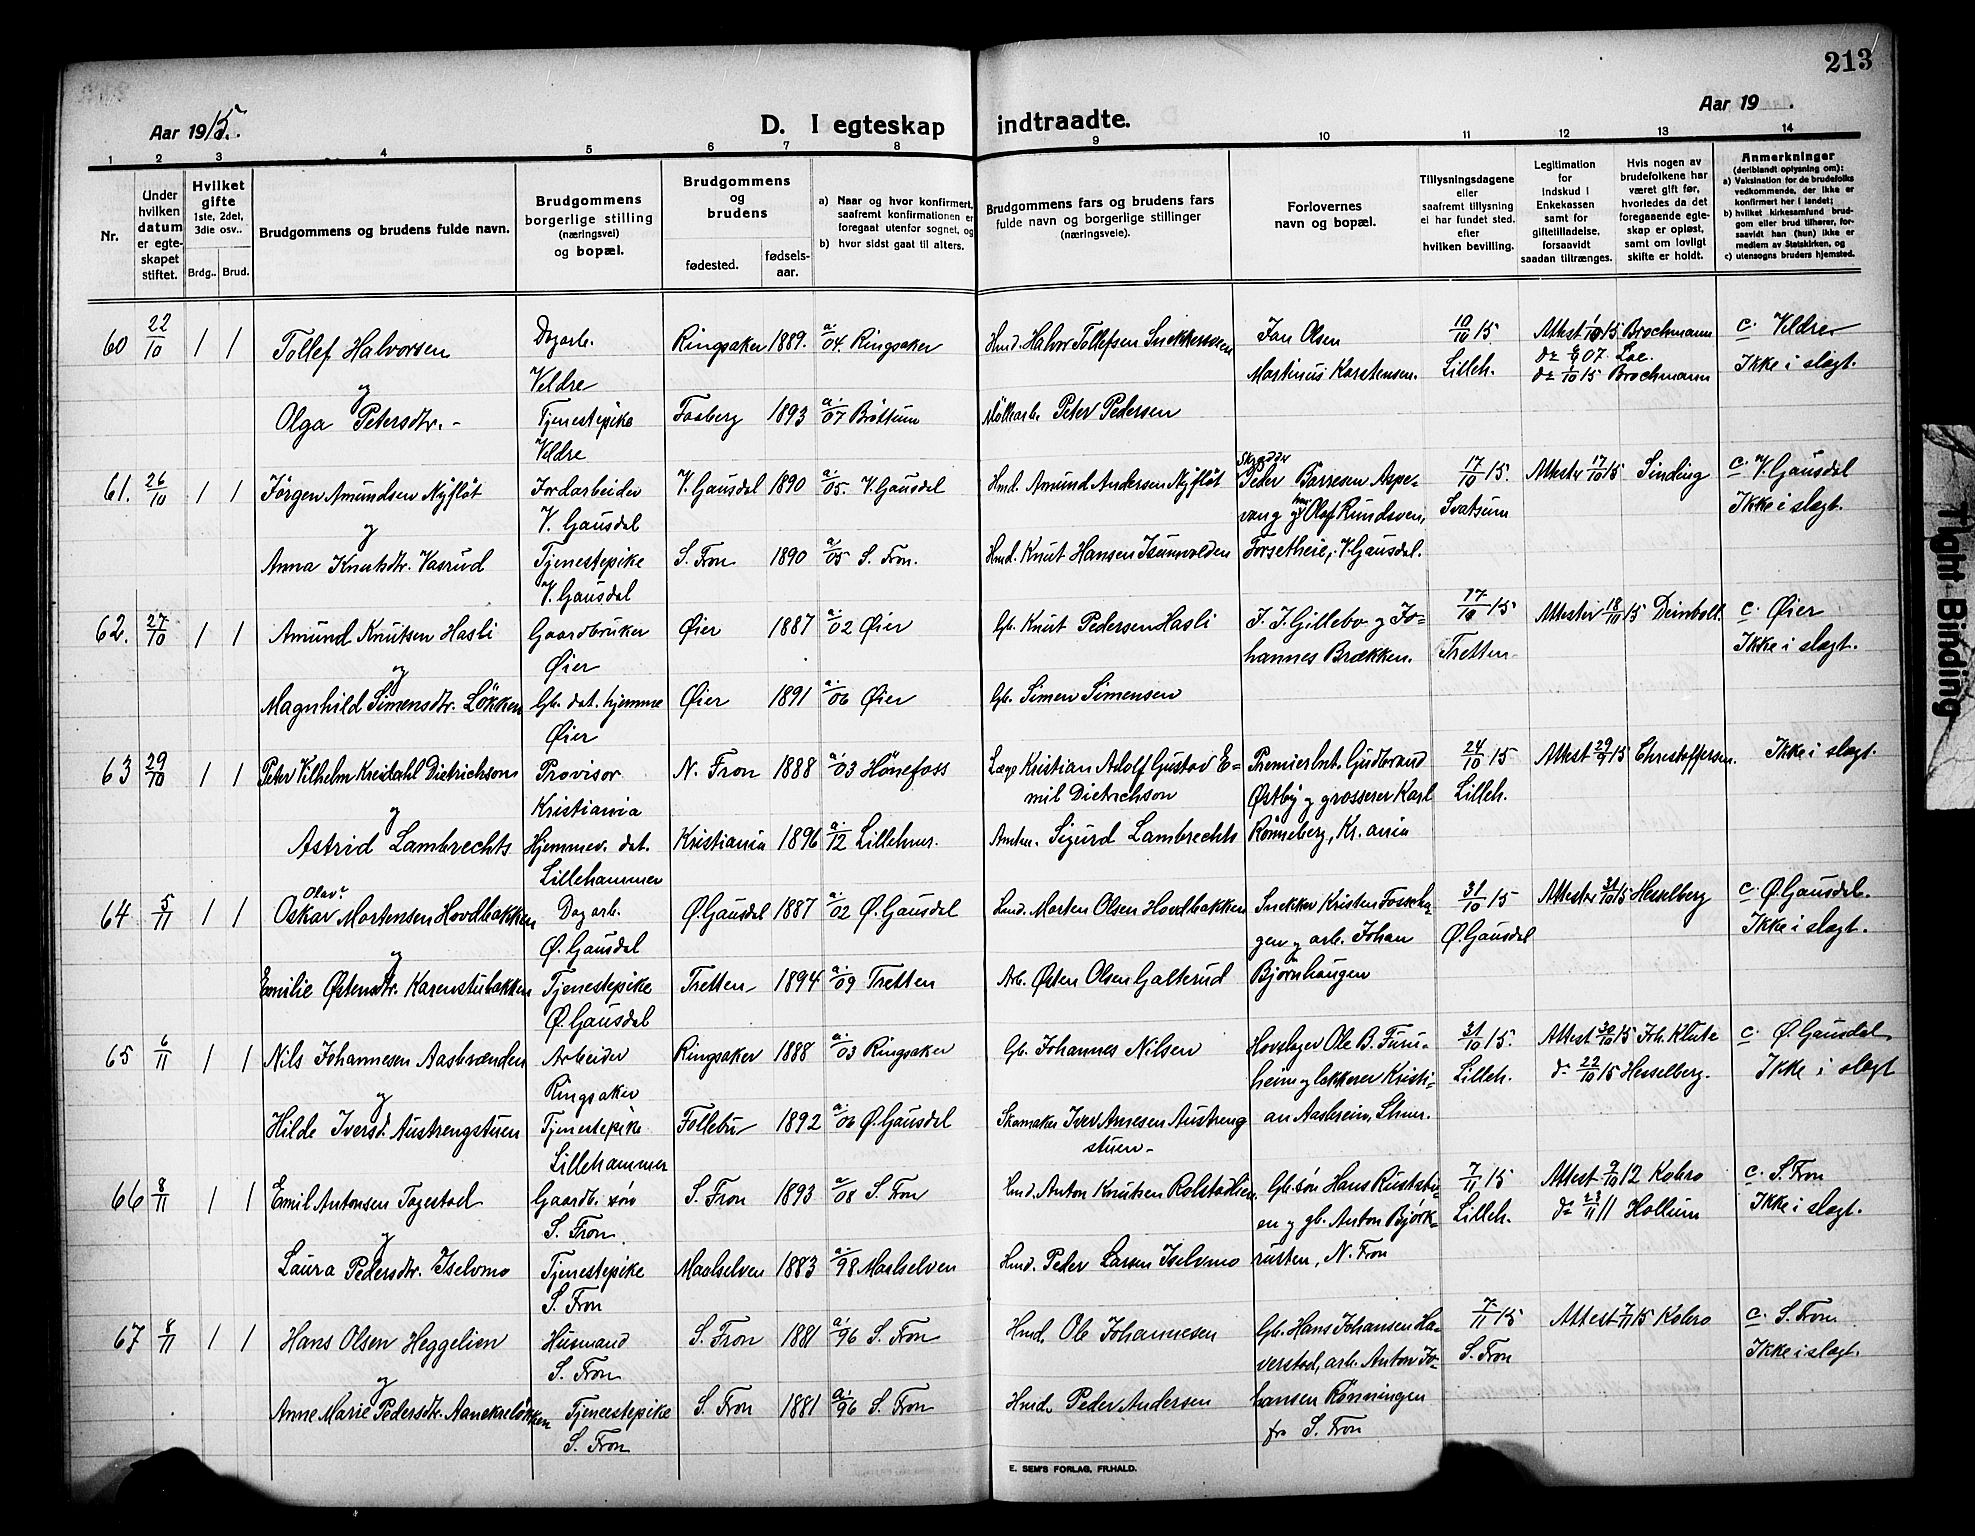 213
Aar 1915.
D. I egteskap indtraadte.
Aar 19 .
1 2 3 4 5 6 7 8 9 10 11 12 13 14
Nr.
Under hvilken datum er egteskapet stiftet.
Hvilket gifte 1ste, 2det, 3die osv..
Brdg.. Brud.
Brudgommens og brudens fulde navn.
Brudgommens borgerlige stilling (næringsvei) og bopæl.
Brudgommens og brudens
fødested. fødselsaar.
a) Naar og hvor konfirmert, saafremt konfirmationen er foregaat utenfor sognet, og
b) hvor sidst gaat til alters.
Brudgommens fars og brudens fars fulde navn og borgerlige stillinger (næringsveie).
Forlovernes navn og bopæl.
Tillysningsdagene eller saafremt tillysning ei har fundet sted. efter hvilken bevilling.
Legitimation for indskud i Enkekassen samt for giftetilladelse, forsaavidt saadan tiltrænges.
Hvis nogen av brudefolkene har været gift før, hvorledes da det foregaaende egteskap er opløst, samt om lovligt skifte er holdt.
Anmerkninger (deriblandt oplysning om):
a) Vaksination for de brudefolks vedkommende, der ikke er konfirmert her i landet;
b) hvilket kirkesamfund brudgom eller brud tilhører, forsaavidt han (hun) ikke er medlem av Statskirken, og
c) utensogns bruders hjemsted.
60 22/10 1 1 Tollef Halvorsen Dagarb. Veldre Ringsaker 1889. a. 04. Ringsaker Hmd. Halvor Tollefsen Jan Olsen 10/10 15. Lilleh. Attest 15 Brochmann c. Veldre
og Martinus Karstensen. do 07. Loe. Ikke i slægt.
do 15 Brochmann
Olga Petersdtr. Tjenestepike Veldre Faaberg 1893 a. 07 Brøttum Peter Pedersen
61. 26/10 1 1 Jörgen Amundsen Nyfløt Jordarbeider V. Gausdal V. Gausdal 1890 a. 05. V. Gausdal Hmd. Amund Andersen Nyfløt Peder Børresen Aspevang og Olaf Rundsven, 17/10 15. Svatsum Attester 17/10 15 Sinding c. V. Gausdal
og Ikke i slægt.
Anna Knutsdtr. Vasrud Tjenestepike V. Gausdal S. Fron 1890 a. 05 S. Fron. Hmd. Knut Hansen Isumvolden Forsetheie, V. Gausdal.
62. 27/10 1 1 Amund Knutsen Hasli Gaardbruker Øier Øier 1887 a. 02 Øier Gb. Knut Pedersen Hasli J. J. Gillebo og Johannes Brækken. 17/10 15 Tretten Attester 18/10 15 Deinboll c. Øier
og Ikke i slægt.
Magnhild Simensdtr. Løkken Gb. dat. hjemme Øier Øier 1891 a. 06 Øier Gb. Simen Simensen
63 29/10 1 1 Peter Vilhelm Kreidahl Dietrichson Provisor Kristiania N. Fron 1888 a. 03 Hönefoss Læge Kristian Adolf Gustav Emil Dietrichson Premierlnt. Gudbrand Østby og grosserer Karl 24/10 15 Lilleh. Attest 29/9 15 Christoffersen. Ikke i slægt.
og
Astrid Lambrechts Hjemmev. dat. Lillehammer Kristiania 1896 a. 12 Lillehmr. Amtm. Sigurd Lambrechts Rönneberg, Kr.ania
64 5/11 1 1 Oskar Olav Mortensen Hovdbakken Dagarb. Ø. Gausdal Ø. Gausdal 1887 a. 02 Ø. Gausdal Hmd. Morten Olsen Hovdbakken Snekker Kristen Fossehagen og arb. Johan 31/10 15 Ø. Gausdal Attester 31/10 15 Hesselberg c. Ø. Gausdal.
og Ikke i slægt.
Emilie Østensdtr. Karenstubakken Tjenestepike Ø. Gausdal Tretten 1894 a. 09 Tretten Arb. Østen Olsen Galterud Bjørnhaugen
65 6/11 1 1 Nils Johannesen Aasbrænden Arbeider Ringsaker Ringsaker 1888 a. 03 Ringsaker Gb. Johannes Nilsen Hovslager Ole B. Furuheim og lakkerer Kristi- 31/10 15. Lilleh. Attest 30/10 15 Joh. Klute c. Ø. Gausdal
og do 22/10 15 Hesselberg. Ikke i slægt
Hilde Iversd. Austrengstuen Tjenestepike Lillehammer Follebu 1892 a. 06 Ø. Gausdal Skomaker Iver Arnesen Austrengstuen an Aasheim, Lhmr.
66 8/11 1 1 Emil Antonsen Togestad Gaardb. søn S. Fron. S. Fron 1893 a. 08 S. Fron Hmd. Anton Knutsen Rolstadlien Gb. søn Hans Ruststuen og gb. Anton Bjørk- 7/11 15 Lilleh. Attest 9/10 12 Kobro c. S. Fron
og do 23/11 11 Hollum Ikke i slægt.
Laura Pedersdtr. Iselvmo Tjenestepike S. Fron Maalselven 1883 a. 98 Maalselven Hmd. Peder Larsen Iselvmo rusten, N. Fron
67 8/11 1 1 Hans Olsen Heggelien Husmand S. Fron S. Fron 1881 a. 96 S. Fron Hmd. Ole Johannesen Gb. Hans Johansen Haverstad, arb. Anton Jo- 7/11 15 S. Fron Attest 7/11 15 Kobro c. S. Fron
og Ikke i slægt.
Anne Marie Pedersdtr. Aanekreløkken Tjenestepike S. Fron S. Fron 1881 a. 96 S. Fron Hmd. Peder Andersen hansen Rönningen fra S. Fron
E. SEM'S FORLAG, FR.HALD.
Tight Binding